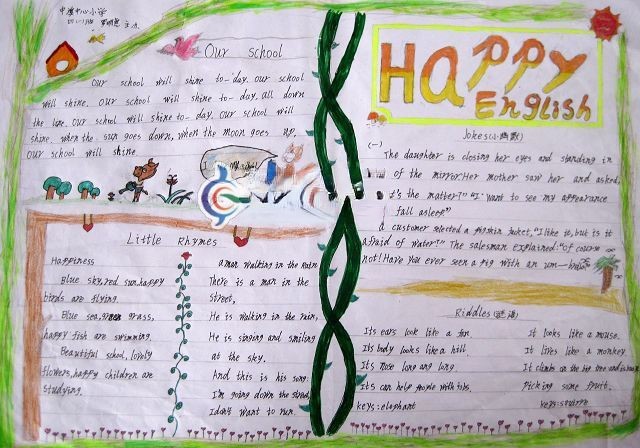 中渡中心小学
Our school
Our school will shine to-day. our school
will shine. our school will shine to-day, all down
the lane. Our school will shine to-day. Our school will
shine. when the sun goes down, when the moon goes up,
our school will shine.
Little Rhymes
Happiness
Blue sky, red sun, happy
birds are flying.
Blue sea, green grass,
happy fish are swimming.
Beautiful school, lovely
flowers, happy children are
studying.
a man walking in the rain
There is a man in the
street,
He is walking in the rain,
He is singing and smiling
at the sky.
And this is his song.
I'm going down the street,
I don't want to run.
HAPPY
English
Jokes(小幽默)
(一)
The daughter is closing her eyes and standing in
of the mirror. Her mother saw her and asked,
t's the matter?" "I want to see my appearance
fall asleep"
a customer selected a pigskin jacket, "I like it, but is it
afraid of water?" The salesman explained: "Of course
not! Have you ever seen a pig with an um—brella
Riddles(谜语)
Its ears look like a fan.
Its body looks like a hill.
Its nose long ang long.
Its can help people with jobs.
keys: elephant
It looks like a mouse.
It lives like a monkey.
It climbs on the big tree and is
Picking some fruit.
keys: squirre